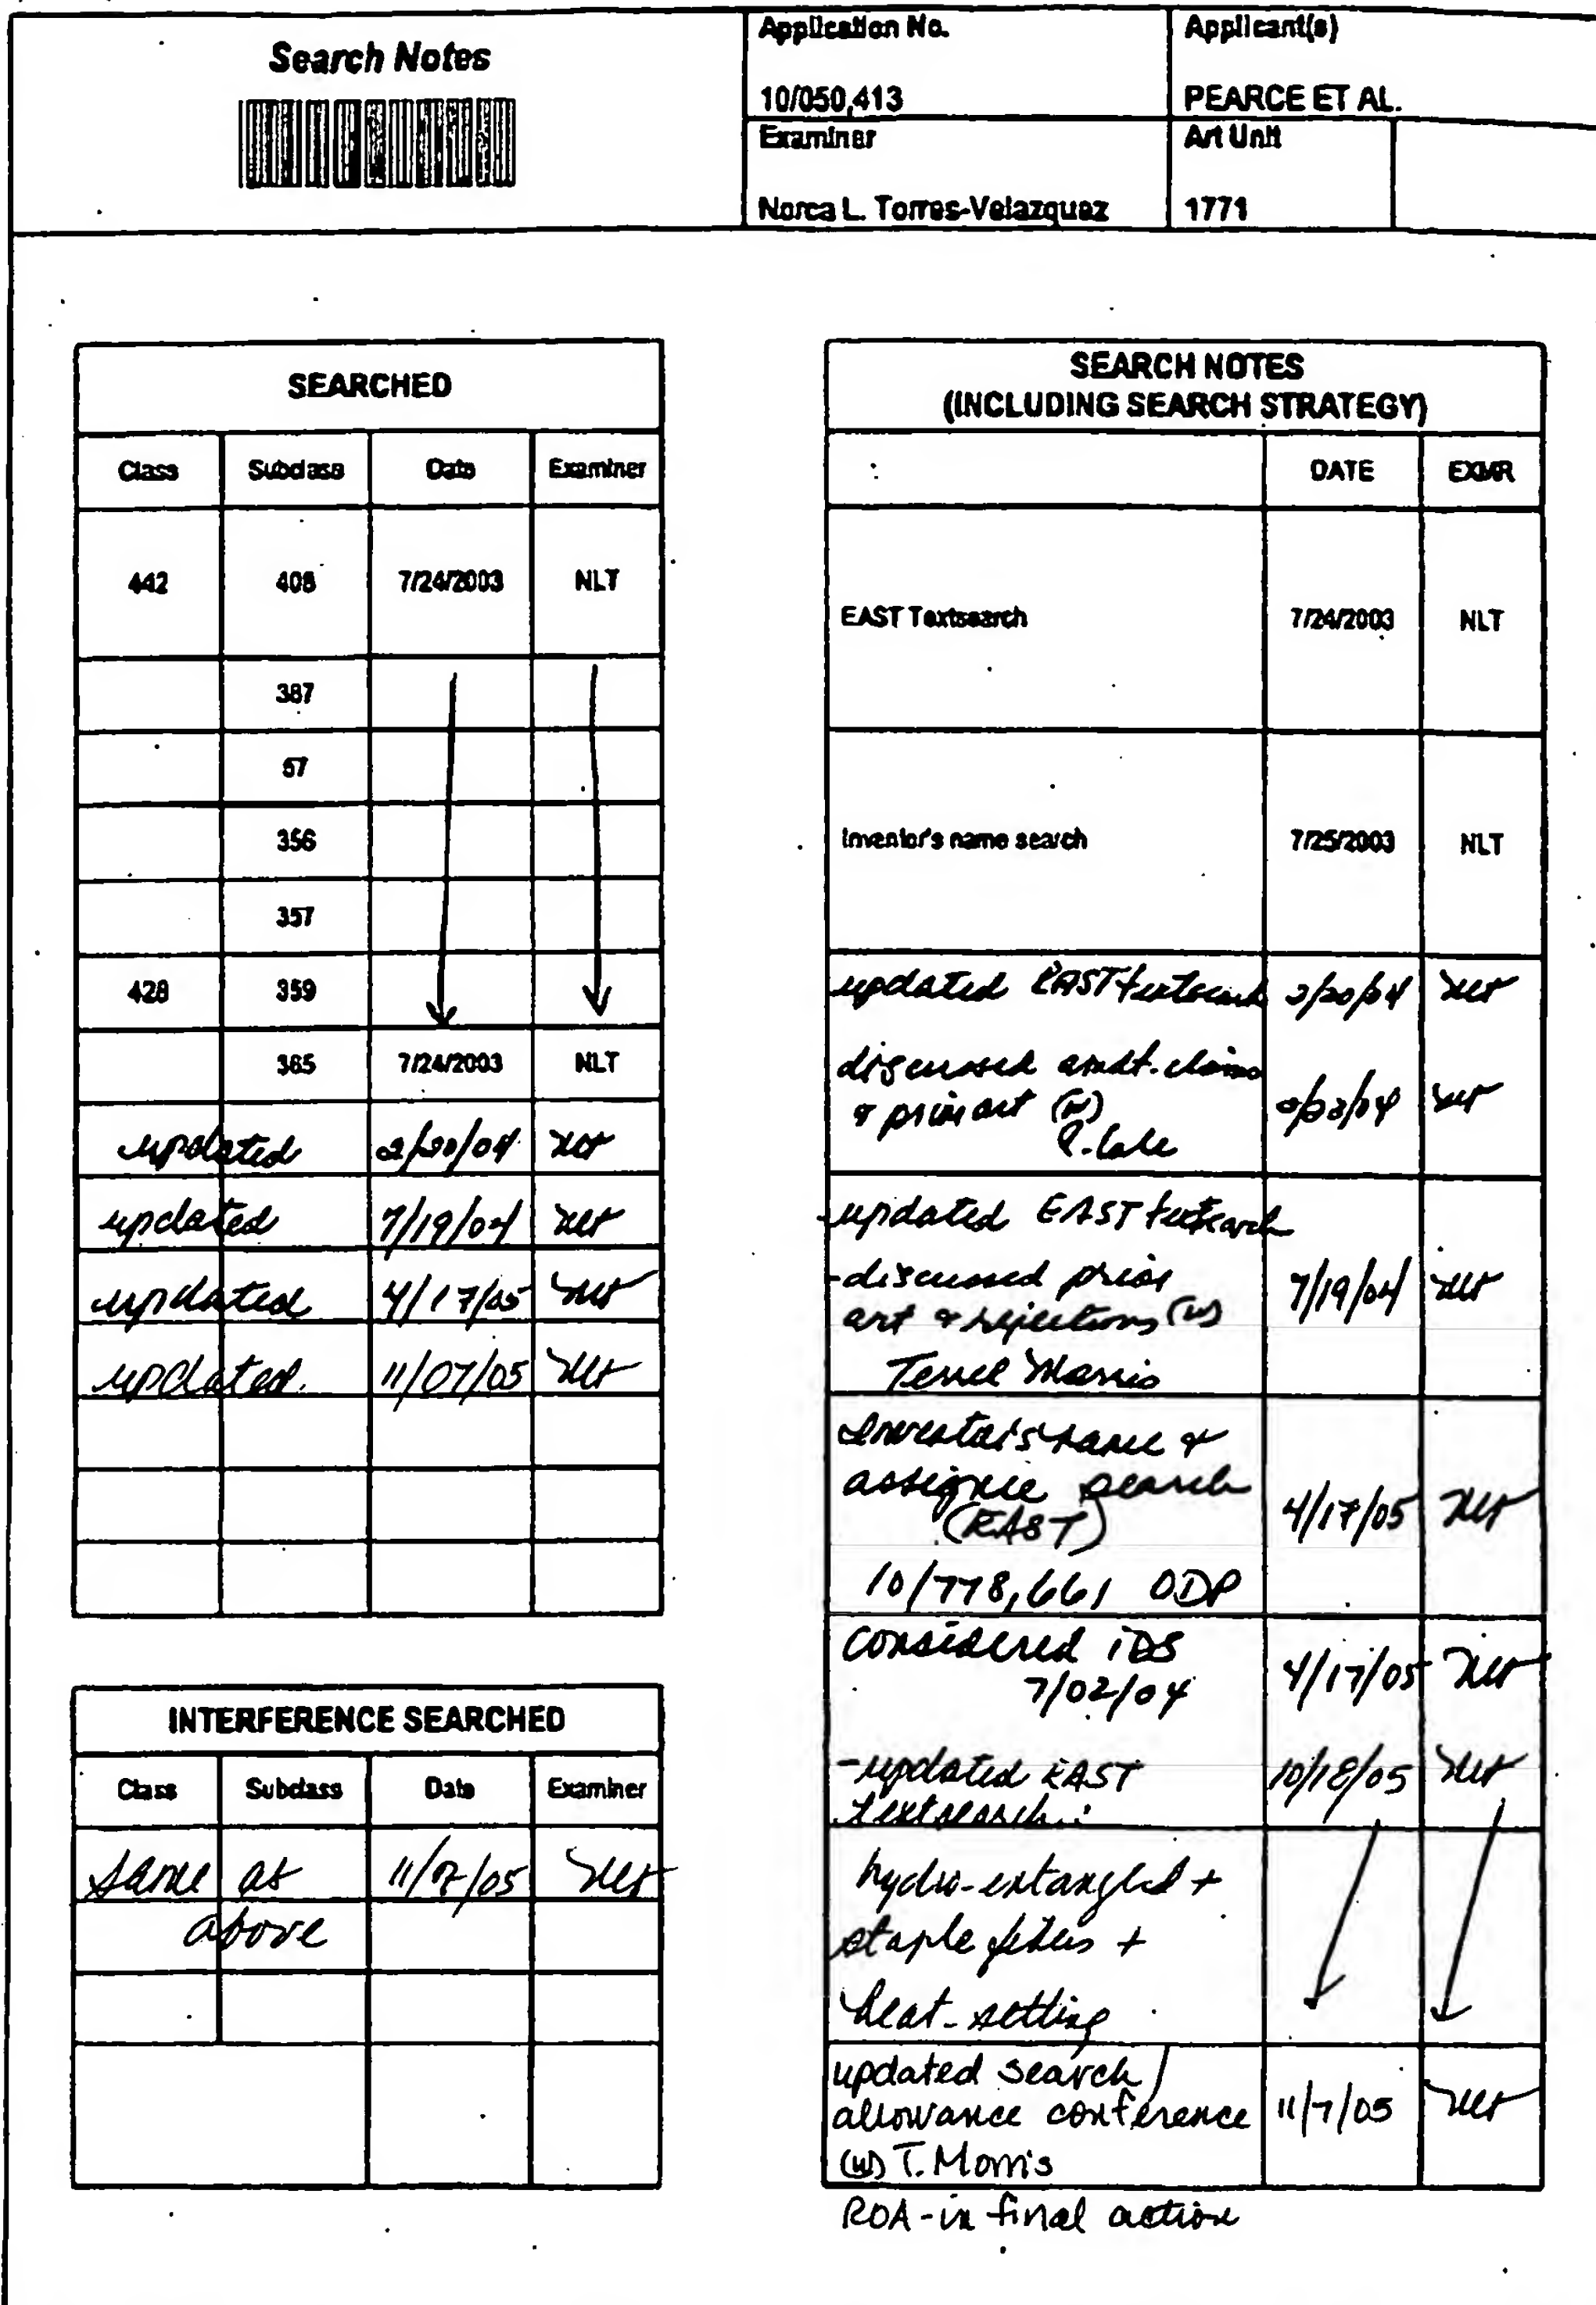 Search Notes
Application No.
Applicant(s)
10/050,413
PEARCE ET AL.
Examiner
Art Unit
Norca L. Torres-Velazquez
1771
SEARCHED
Class Subclass Date Examiner
442 408 7/24/2003 NLT
387
57
356
357
428 359
365 7/24/2003 NLT
updated 2/20/04 NLT
updated 7/19/04 NLT
updated 4/17/05 NLT
updated. 11/07/05 NLT
INTERFERENCE SEARCHED
Class Subclass Date Examiner
same as 11/7/05 NLT
above
SEARCH NOTES
(INCLUDING SEARCH STRATEGY)
DATE EXMR
EAST Textsearch 7/24/2003 NLT
Inventor's name search 7/25/2003 NLT
updated EAST textsearch 2/20/04 NLT
discussed amdt. claims
& prior art (w) NLT
-updated EAST textsearch
-discussed prior 7/19/04 NLT
art & rejections (w)
Terrel Morris
Inventor's name &
assignee search 4/17/05 NLT
(EAST)
10/778,661 ODP
considered IDS 4/17/05 NLT
7/02/04
-updated EAST 10/18/05 NLT
textsearch:
hydro-entangled +
staple fibers +
heat-setting
updated search/
allowance conference 11/7/05 NLT
(w) T. Morris
ROA-in final action